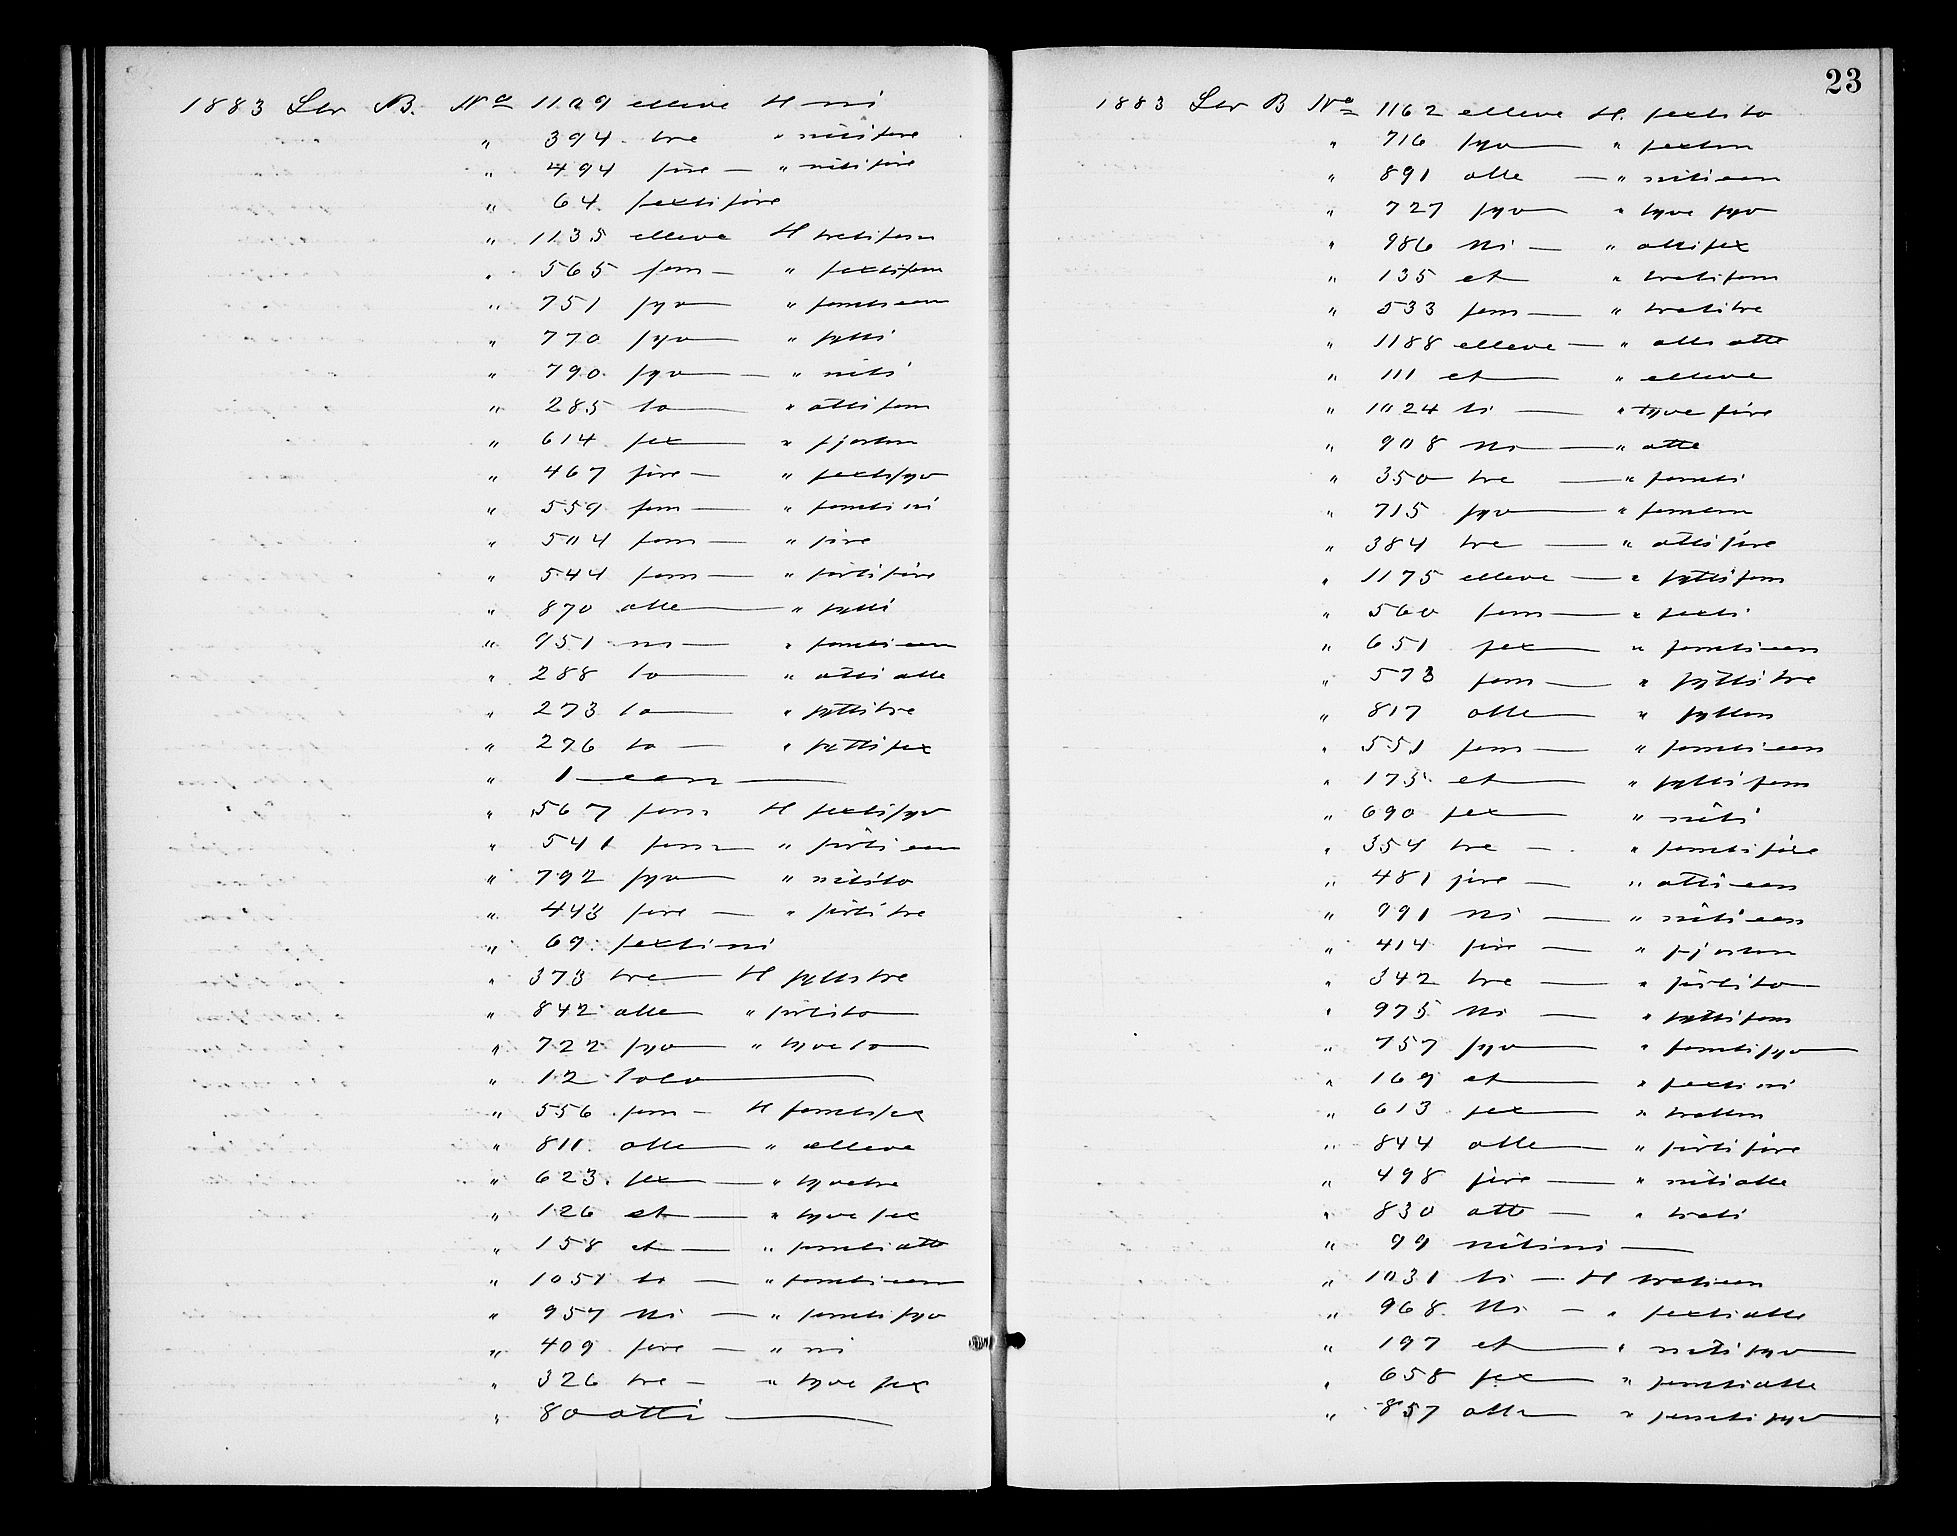 1883 Ltr B. No 1109 elleve H ni
" 394 tre " nitifire
" 494 fire — " nitifire
" 64 sextifire
" 1135 elleve H tretifem
" 565 fem — " sextifem
" 751 syv — " femtieen
" 770 syv — " sytti
" 790 syv — " niti
" 285 to — " ottifem
" 614 sex — " fjorten
" 467 fire — " sextisyv
" 559 fem — " femtini
" 504 fem — " fire
" 544 fem — " førtifire
" 870 otte — " sytti
" 951 ni — " femtieen
" 288 to — " ottiotte
" 273 to — " syttitre
" 276 to — " syttisex
" 1 — een —
" 567 fem H sextisyv
" 541 fem — " førtieen
" 792 syv — " nitito
" 443 fire — " førtitre
" 69 sextini
" 373 tre — H syttitre
" 842 otte " førtito —
" 722 syv — " tyveto —
" 12 tolv —
" 556 fem — H femtisex
" 811 otte — " elleve
" 623 sex — " tyvetre
" 126 et — " tyvesex
" 158 et — " femtiotte
" 1051 ti — " femtieen
" 957 Ni — " femtisyv
" 409 fire — " ni
" 326 tre — " tyvesex
" 80 otti —
23
1883 Ltr B No 1162 elleve H. sextito
" 716 syv — " sexten
" 891 otte — " nitieen
" 727 syv — " tyvesyv
" 986 Ni — " ottisex
" 135 et " tretifem
" 533 fem — " tretitre
" 1188 elleve — " ottiotte
" 111 et — " elleve
" 1024 ti — " tyvefire
" 908 Ni — " otte
" 350 tre — " femti
" 715 syv — " femten
" 384 tre — " ottifire
" 1175 elleve — " syttifem
" 560 fem — " sexti
" 651 sex — " femtieen
" 573 fem — " syttitre
" 817 otte — " sytten
" 551 fem — " femtieen
" 175 et — " syttifem
" 690 sex — " niti
" 354 tre — " femtifire
" 481 fire — " ottieen
" 991 Ni — " nitieen
" 414 fire — " fjorten
" 342 tre — " førtito —
" 975 Ni — " syttifem
" 757 syv — " femtisyv —
" 169 et — " sextini
" 613 sex — " tretten
" 844 otte — " førtifire
" 498 fire — " nitiotte
" 830 otte — " treti
" 99 nitini —
" 1031 ti — H tretieen
" 968 Ni — " sextiotte
" 197 et — " nitisyv —
" 658 sex — " femtiotte
" 857 otte — " femtisyv —